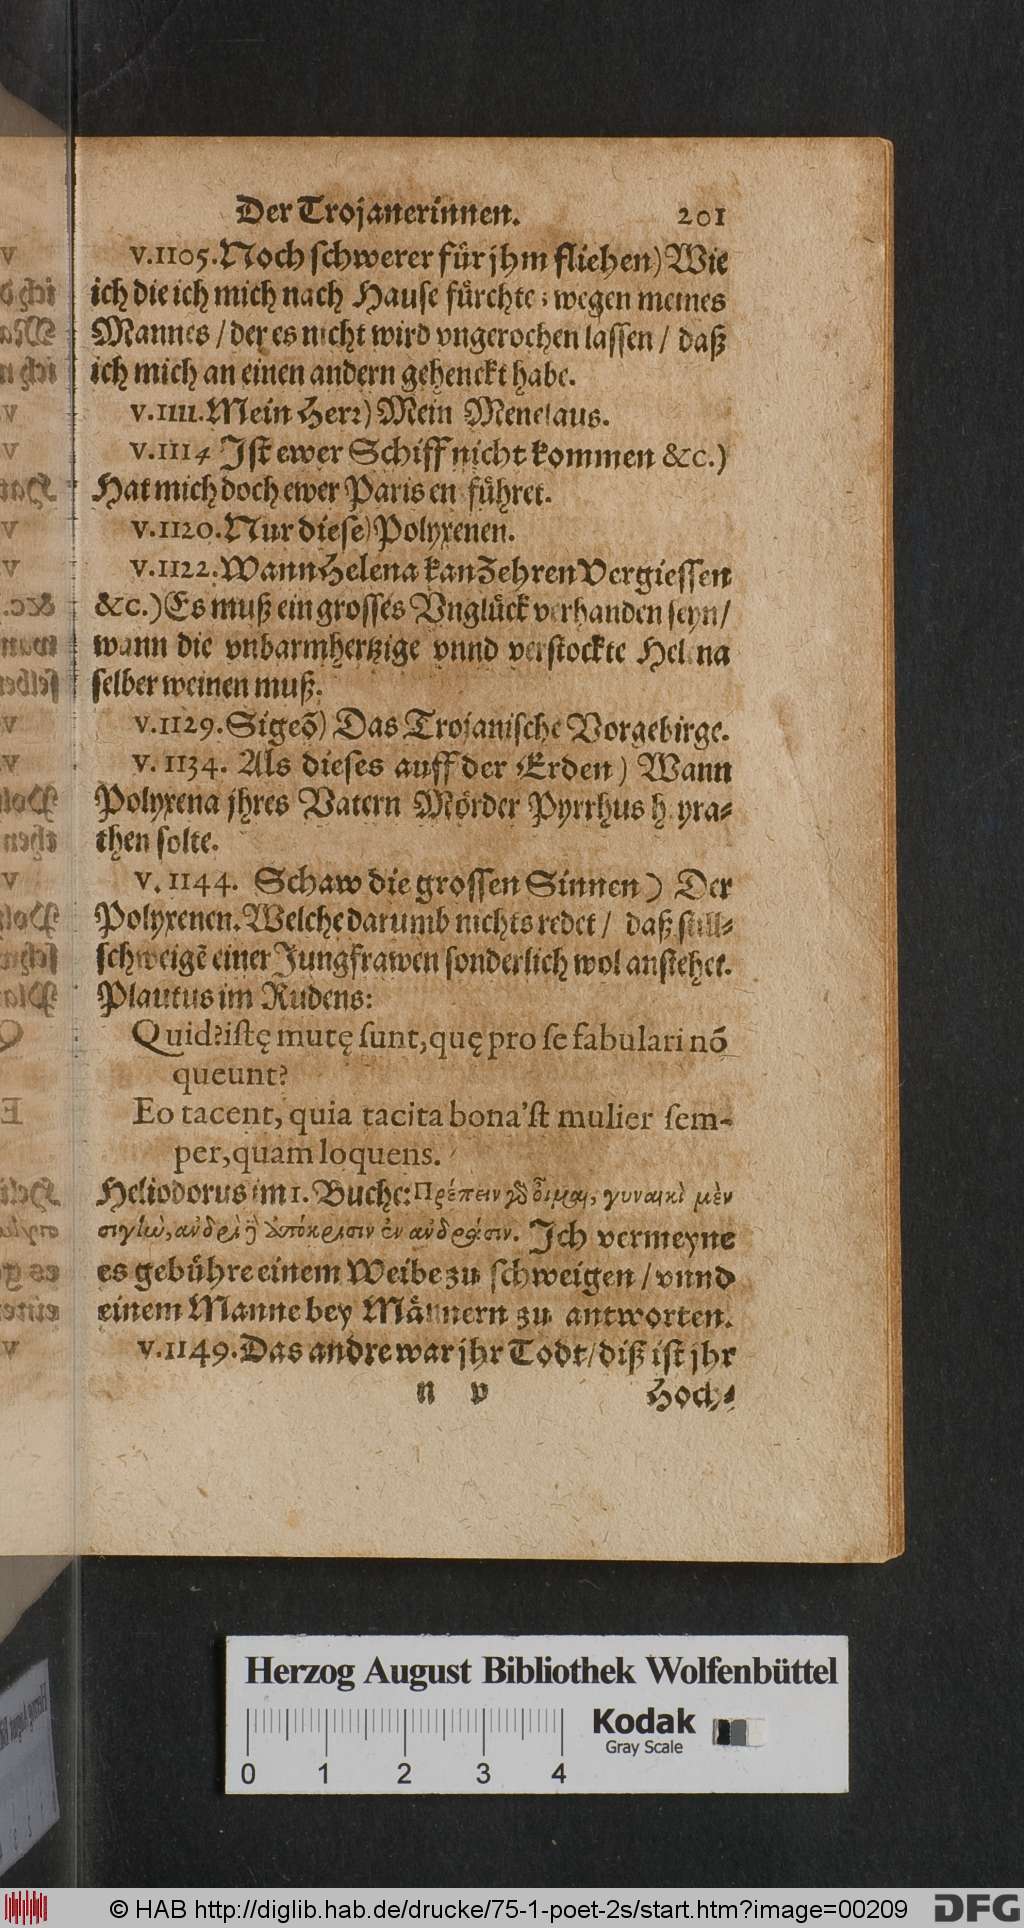 Der Trojanerinnen. 201
v.1105. Noch schwerer für jhm fliehen) Wie
ich die ich mich nach Hause fürchte; wegen meines
Mannes / der es nicht wird vngerochen lassen / daß
ich mich an einen andern gehenckt habe.
v.1111. Mein Herr) Mein Menelaus.
v.1114 Jst ewer Schiff nicht kommen &c.)
Hat mich doch ewer Paris entführet.
v.1120. Nur diese) Polyxenen.
v.1122. Wann Helena kan Zehren Vergiessen
&c.) Es muß ein grosses Vnglück verhanden seyn/
wann die vnbarmhertzige vnnd verstockte Helena
selber weinen muß.
v.1129. Sigeõ) Das Trojanische Vorgebirge.
v. 1134. Als dieses auff der Erden) Wann
Polyxena jhres Vatern Mörder Pyrrhus heyra-
then solte.
v. 1144. Schaw die grossen Sinnen) Der
Polyxenen. Welche darumb nichts redet / daß still-
schweigẽ einer Jungfrawen sonderlich wol anstehet.
Plautus im Rudens:
Quid? istę mutę sunt, quę pro se fabulari nõ
queunt?
Eo tacent, quia tacita bona'st mulier sem-
per, quam loquens.
Heliodorus im 1. Buche: Πρέπειν γὸ οἶμαι, γυναικὶ μὲν
σιγὴν, ἀνδρὶ ἢ ὑπόκρισιν ἐν ἀνδράσιν. Jch vermeyne
es gebühre einem Weibe zu schweigen / vnnd
einem Manne bey Männern zu antworten.
v.1149. Das andre war jhr Todt / diß ist jhr
n v Hoch-
Herzog August Bibliothek Wolfenbüttel
Kodak
Gray Scale
0 1 2 3 4
© HAB http://diglib.hab.de/drucke/75-1-poet-2s/start.htm?image=00209 DFG